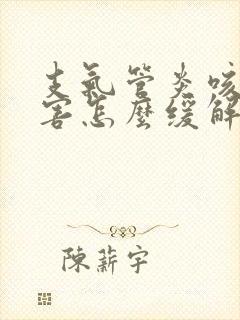 支氣管炎咳
害怎麼緩解
陳薪宇